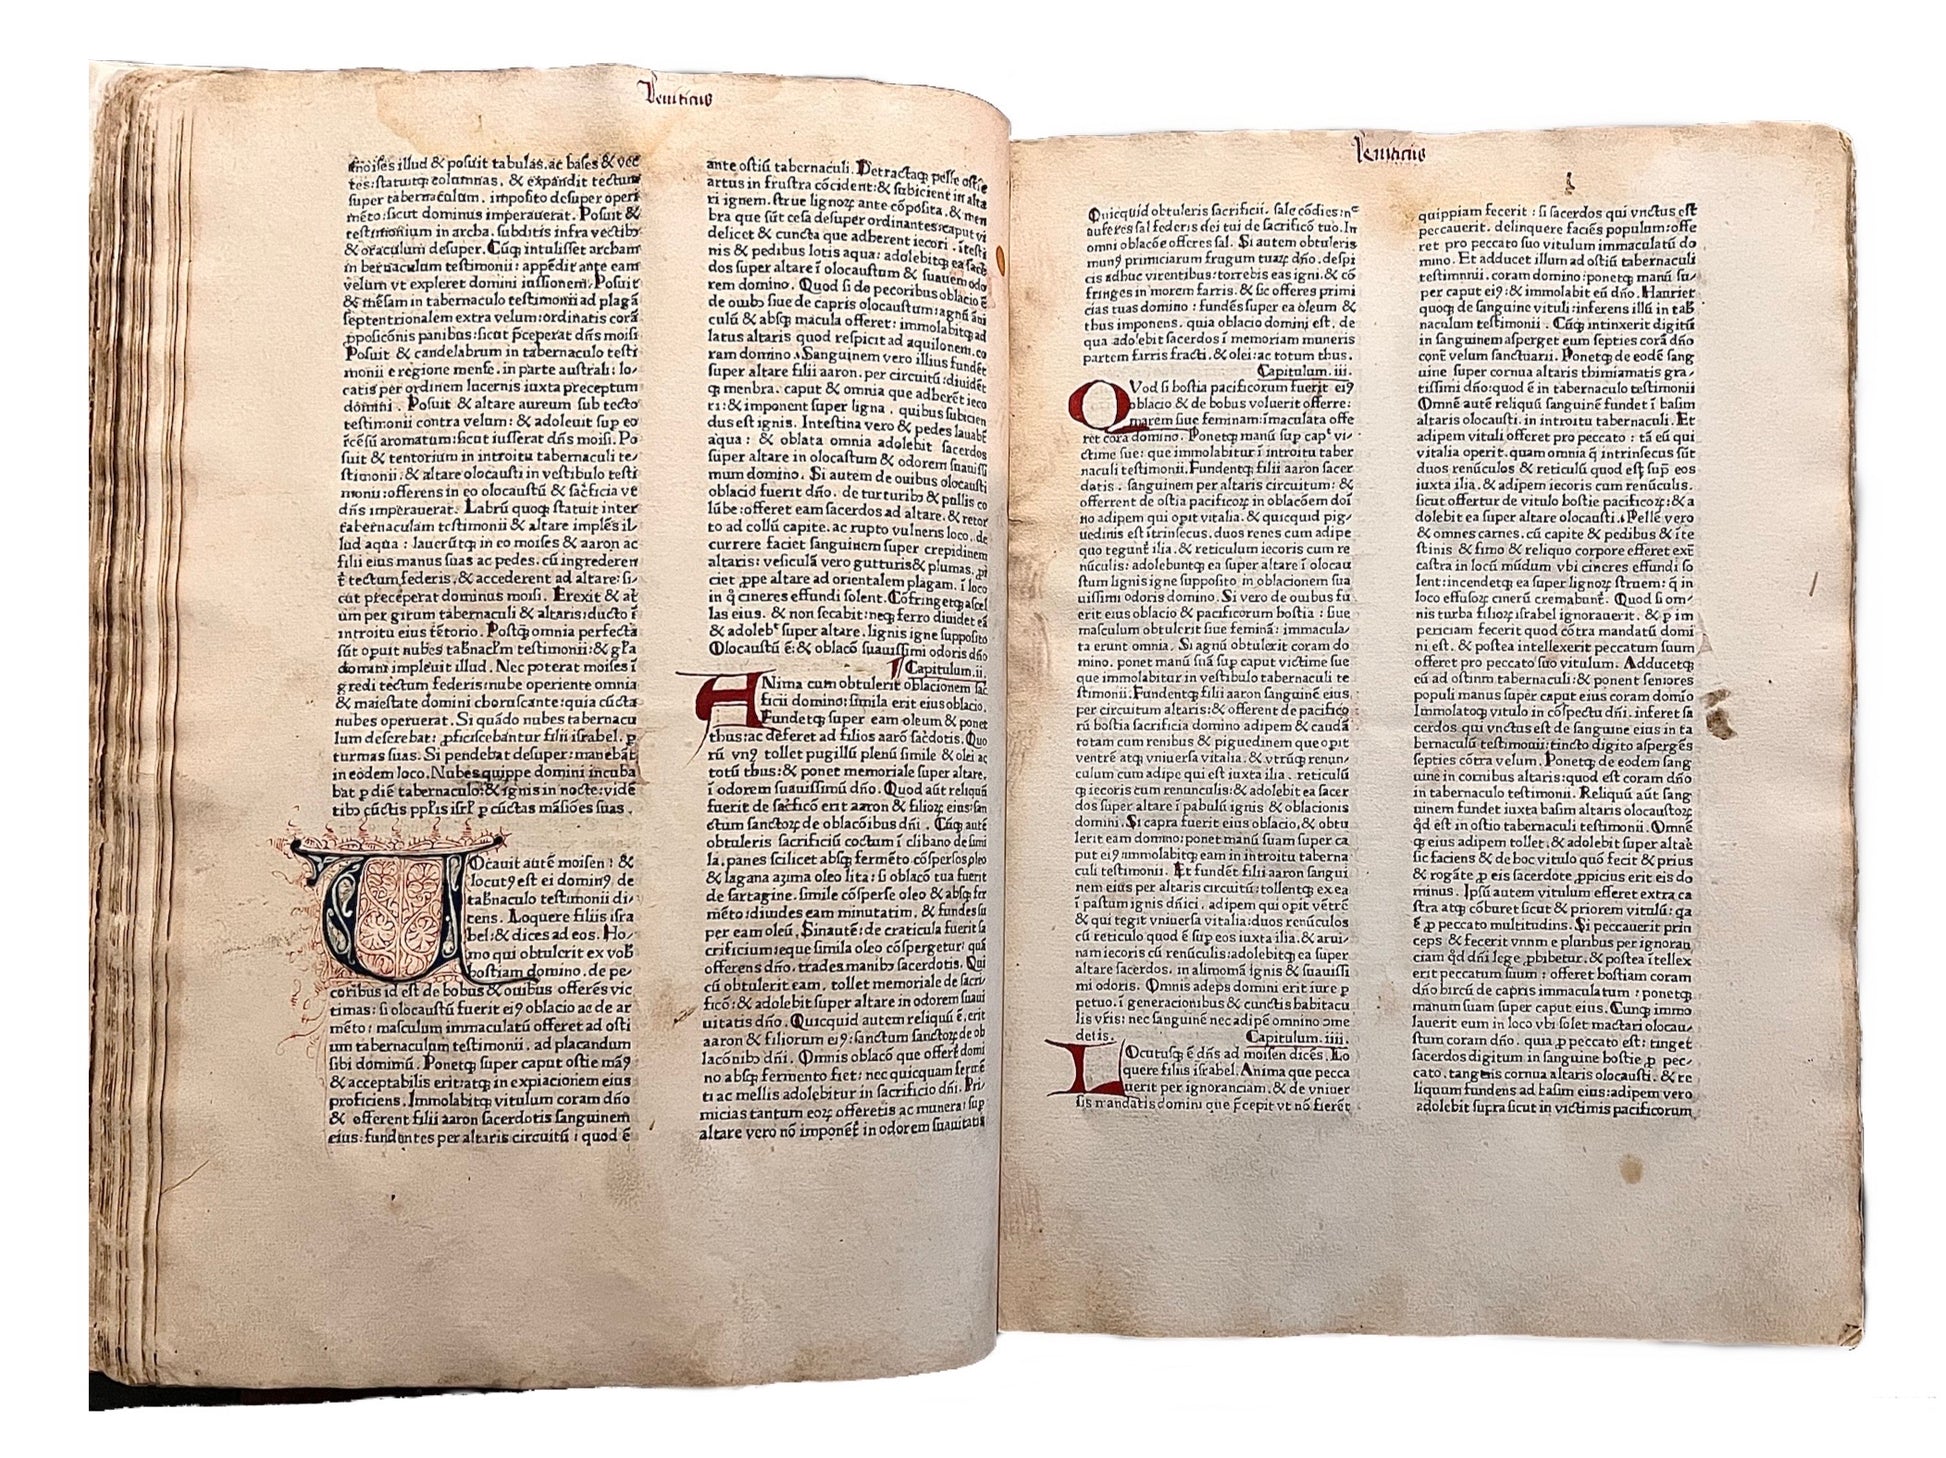 Leuiticus
moises illud & posuit tabulas. ac bases & vec
tes: statuitqꝫ columnas. & expandit tectum
super tabernaculum. imposito desuper operi
mēto: sicut dominus imperauerat. Posuit &
testimonium in archa. subditis infra vectibꝫ
& oraculum desuper. Cūqꝫ intulisset archam
in bernaculum testimonii: appēdit ante eam
velum vt expleret domini iussionem. Posuit
& mēsam in tabernaculo testimonii ad plagā
septentrionalem extra velum: ordinatis corā
ꝓposiciōnis panibus: sicut p̄ceperat dn̄s moisi
Posuit & candelabrum in tabernaculo testi
monii e regione mense. in parte australi: lo-
catis per ordinem lucernis iuxta preceptum
domini. Posuit & altare aureum sub tecto
testimonii contra velum: & adoleuit sup eo
īcēsū aromatum: sicut iusserat dn̄s moisi. Po
suit & tentorium in introitu tabernaculi te-
stimonii. & altare olocausti in vestibulo testi
monii: offerens in eo olocaustū & sac̄ficia vt
dn̄s imperauerat. Labrū quoqꝫ statuit inter
tabernaculam testimonii & altare implēs il-
lud aqua: lauerūtqꝫ in eo moises & aaron ac
filii eius manus suas ac pedes. cū ingrederen
t̄ tectum federis. & accederent ad altare: si-
cut preceperat dominus moisi. Erexit & at
um per girum tabernaculi & altaris: ducto ī
introitu eius tētorio. Postqꝫ omnia perfecta
sūt opuit nubes tabnac̄lm testimonii: & gl̄a
domini impleuit illud. Nec poterat moises ī
gredi tectum federis: nube operiente omnia
& maiestate domini choruscante: quia cūcta
nubes operuerat. Si quādo nubes tabernacu
lum deserebat: ꝓficiscebantur filii israhel. ꝑ
turmas suas. Si pendebat desuper: manebāt
in eodem loco. Nubes quippe domini incuba
bat ꝑ diē tabernaculo: & ignis in nocte: vidē
tibꝫ cūctis pplīs isrl̄ ꝑ cūctas māsiōes suas.
VOcauit autē moisen: &
locutꝰ est ei dominꝰ de
tabnaculo testimonii di-
cens. Loquere filiis isra
hel: & dices ad eos. Ho-
mo qui obtulerit ex vob̄
hostiam domino. de pe-
coribus id est de bobus & ouibus offerēs vic
timas: si olocaustū fuerit eiꝰ oblacio ac de ar
mēto: masculum immaculatū offeret ad osti
um tabernaculum testimonii. ad placandum
sibi dominū. Ponetqꝫ super caput ostie māꝰ
& acceptabilis erit: atqꝫ in expiacionem eius
proficiens. Immolabitqꝫ vitulum coram dn̄o
& offerent filii aaron sacerdotis sanguinem
eius: fundentes per altaris circuitū: quod ē
ante ostiū tabernaculi. Detractaqꝫ pelle ostie
artus in frustra cōcident: & subicient in alta
ri ignem. strue lignoꝝ ante cōposita. & men
bra que sūt cesa desuper ordinantes: caput vi
delicet & cuncta que adherent iecori. ītesti
nis & pedibus lotis aqua: adolebitqꝫ ea sacer
dos super altare ī olocaustum & suauem odo
rem domino. Quod si de pecoribus oblacio ē
de ouibꝫ siue de capris olocaustum: agnū āni
culū & absqꝫ macula offeret: immolabitqꝫ ad
latus altaris quod respicit ad aquilonem. co
ram domino. Sanguinem vero illius fundēt
super altare filii aaron. per circuitū: diuidēt
qꝫ menbra. caput & omnia que adherēt ieco
ri: & imponent super ligna. quibus subicien
dus est ignis. Intestina vero & pedes lauabūt
aqua: & oblata omnia adolebit sacerdos
super altare in olocastum & odorem suauissi
mum domino. Si autem de ouibus olocausti
oblacio fuerit dn̄o. de turturibꝫ & pullis co
lūbe: offeret eam sacerdos ad altare. & retor
to ad collū capite. ac rupto vulneris loco. de
currere faciet sanguinem super crepidinem
altaris: vesiculā vero gutturis & plumas. ꝓi
ciet ꝓpe altare ad orientalem plagam. ī loco
in q̄ cineres effundi solent. Cōfringetqꝫ ascel
las eius. & non secabit: neqꝫ ferro diuidet eā
& adolebͭ super altare. lignis igne supposito
Olocaustū ē: & oblacō suauissimi odoris dn̄o
Capitulum.ii.
ANima cum obtulerit oblacionem sac̄
ficii domino: simila erit eius oblacio.
Fundetqꝫ super eam oleum & ponet
thus: ac deferet ad filios aarō sac̄dotis. Quo
rū vnꝰ tollet pugillū plenū simile & olei ac
totū thus: & ponet memoriale super altare.
ī odorem suauissimū dn̄o. Quod aūt reliquū
fuerit de sac̄ficō erit aaron & filioꝝ eius: san
ctum sanctoꝝ de oblacōibus dn̄i. Cūqꝫ autē
obtuleris sacrificiū coctum ī clibano de simi
la. panes scilicet absqꝫ fermēto cōspersos oleo
& lagana azima oleo lita: si oblacō tua fuerit
de sartagine. simile cōsperse oleo & absqꝫ fer
mēto: diuides eam minutatim. & fundes su
per eam oleū. Sinautē: de craticula fuerit sa
crificium: eque simila oleo cōspergetur: quā
offerens dn̄o. trades manibꝫ sacerdotis. Qui
cū obtulerit eam. tollet memoriale de sacri
ficō: & adolebit super altare in odorem suaui
uitatis dn̄o. Quicquid autem reliquū ē. erit
aaron & filiorum eiꝰ: sanctum sanctoꝝ de ob
lacōnibꝫ dn̄i. Omnis oblacō que offert̄ domi
no absqꝫ fermento fiet: nec quicquam fermē
ti ac mellis adolebitur in sacrificio dn̄i. Pri-
micias tantum eoꝝ offeretis ac munera: sup
altare vero nō imponēt̄ in odorem suauitatis
Leuiticus
Quicquid obtuleris sacrificii. sale cōdies: nͨ
auferes sal federis dei tui de sacrificō tuo. In
omni oblacōe offeres sal. Si autem obtuleris
munꝰ primiciarum frugum tuaꝝ dn̄o. de spi
cis adhuc virentibus: torrebis eas igni. & cō
fringes in morem farris. & sic offeres primi
cias tuas domino: fundēs super ea oleum &
thus imponens. quia oblacio domini est. de
qua adolebit sacerdos ī memoriam muneris
partem farris fracti. & olei: ac totum thus.
Capitulum.iii.
QVod si hostia pacificorum fuerit eiꝰ
oblacio & de bobus voluerit offerre:
marem siue feminam: īmaculata offe
ret corā domino. Ponetqꝫ manū sup capͭ vi-
ctime sue: que immolabitur ī introitu taber
naculi testimonii. Fundentqꝫ filii aaron sacer
dotis. sanguinem per altaris circuitum: &
offerrent de ostia pacificoꝝ in oblacōem doi
no adipem qui opit vitalia. & quicquid pig-
uedinis est ītrinsecus. duos renes cum adipe
quo tegunt̄ ilia. & reticulum iecoris cum re
nūculis: adolebuntqꝫ ea super altare ī olocau
stum lignis igne supposito in oblacionem sua
uissimi odoris domino. Si vero de ouibus fu
erit eius oblacio & pacificorum hostia: siue
masculum obtulerit siue feminā: immacula-
ta erunt omnia. Si agnū obtulerit coram do
mino. ponet manū suā sup caput victime sue
que immolabitur in vestibulo tabernaculi te
stimonii. Fundentqꝫ filii aaron sanguinē eius.
per circuitum altaris: & offerent de pacifico
rū hostia sacrificia domino adipem & caudā
totam cum renibus & piguedinem que opit
ventrē atqꝫ vniuersa vitalia. & vtrūqꝫ renun-
culum cum adipe qui est iuxta ilia. reticulū
qꝫ iecoris cum renunculis: & adolebit ea sacer
dos super altare ī pabulū ignis & oblacionis
domini. Si capra fuerit eius oblacio. & obtu
lerit eam domino: ponet manū suam super ca
put eiꝰ immolabitqꝫ eam in introitu taberna
culi testimonii. Et fundēt filii aaron sangui
nem eius per altaris circuitū: tollentqꝫ ex ea
ī pastum ignis dn̄ici. adipem qui opit vētrē
& qui tegit vniuersa vitalia: duos renūculos
cū reticulo quod ē sup eos iuxta ilia. & arui-
nam iecoris cū renūculis: adolebitqꝫ ea super
altare sacerdos. in alimomā ignis & suauissi
mi odoris. Omnis adeps domini erit iure ꝑ
petuo. ī generacionibus & cunctis habitacu
lis vr̄is: nec sanguinē nec adipē omnino ꝯme
detis. Capitulum.iiii.
LOcutusqꝫ ē dn̄s ad moisen dicēs. Lo
quere filiis israhel. Anima que pecca
uerit per ignoranciam. & de vniuer
sis mandatis domini que p̄cepit vt nō fierēt
quippiam fecerit: si sacerdos qui vnctus est
peccauerit. delinquere faciēs populum: offe
ret pro peccato suo vitulum immaculatū do
mino. Et adducet illum ad ostiū tabernaculi
testimnnii. coram domino: ponetqꝫ manū su-
per caput eiꝰ: & immolabit eū dn̄o. Hauriet
quoqꝫ de sanguine vituli: inferens illū in tab̄
naculum testimonii. Cūqꝫ intinxerit digitū
in sanguinem asperget eum septies corā dn̄o
cont̄ velum sanctuarii. Ponetqꝫ de eodē sang
uine super cornua altaris thimiamatis gra-
tissimi dn̄o: quod ē in tabernaculo testimonii
Omnē autē reliquū sanguinē fundet ī basim
altaris olocausti. in introitu tabernaculi. Et
adipem vituli offeret pro peccato: tā eū qui
vitalia operit. quam omnia q̄ intrinsecus sūt
duos renūculos & reticulū quod est sup̄ eos
iuxta ilia. & adipem iecoris cum renūculis.
sicut offertur de vitulo hostie pacificoꝝ: & a
dolebit ea super altare olocausti. Pellē vero
& omnes carnes. cū capite & pedibus & īte
stinis & fimo & reliquo corpore efferet ext̄
castra in locū mūdum vbi cineres effundi so
lent: incendetqꝫ ea super lignoꝝ struem: q̄ in
loco effusoꝝ cinerū cremabunt̄. Quod si om-
nis turba filioꝝ israhel ignorauerit. & ꝑ im
periciam fecerit quod cōtra mandatū domi
ni est. & postea intellexerit peccatum suum
offeret pro peccato suo vitulum. Adducetqꝫ
eū ad ostinm tabernaculi: & ponent seniores
populi manus super caput eius coram domio
Immolatoqꝫ vitulo in cōspectu dn̄i. inferet sa
cerdos qui vnctus est de sanguine eius in ta
bernaculū testimonii: tincto digito aspergēs
septies cōtra velum. Ponetqꝫ de eodem sang
uine in cornibus altaris: quod est coram dn̄o
in tabernaculo testimonii. Reliquū aūt sang
uinem fundet iuxta basim altaris olocaustoꝝ
qd̄ est in ostio tabernaculi testimonii. Omnē
qꝫ eius adipem tollet. & adolebit sup altac̄
sic faciens & de hoc vitulo quō fecit & prius
& rogāte ꝓ eis sacerdote ꝓpicius erit eis do
minus. Ipsū autem vitulum efferet extra ca
stra atqꝫ cōburet sicut & priorem vitulū: qa
ē ꝓ peccato multitudins. Si peccauerit prin
ceps & fecerit vnnm e pluribus per ignoran
ciam qd̄ dn̄i lege ꝓhibetur. & postea ītellex
erit peccatum suum: offeret hostiam coram
dn̄o hircū de capris immaculatum: ponetqꝫ
manum suam super caput eius. Cunqꝫ immo
lauerit eum in loco vbi solet mactari olocau-
stum coram dn̄o. quia ꝓ peccato est: tinget
sacerdos digitum in sanguine hostie ꝓ pec-
cato. tangens cornua altaris olocausti. & re
liquum fundens ad basim eius: adipem vero
adolebit supra sicut in victimis pacificorum